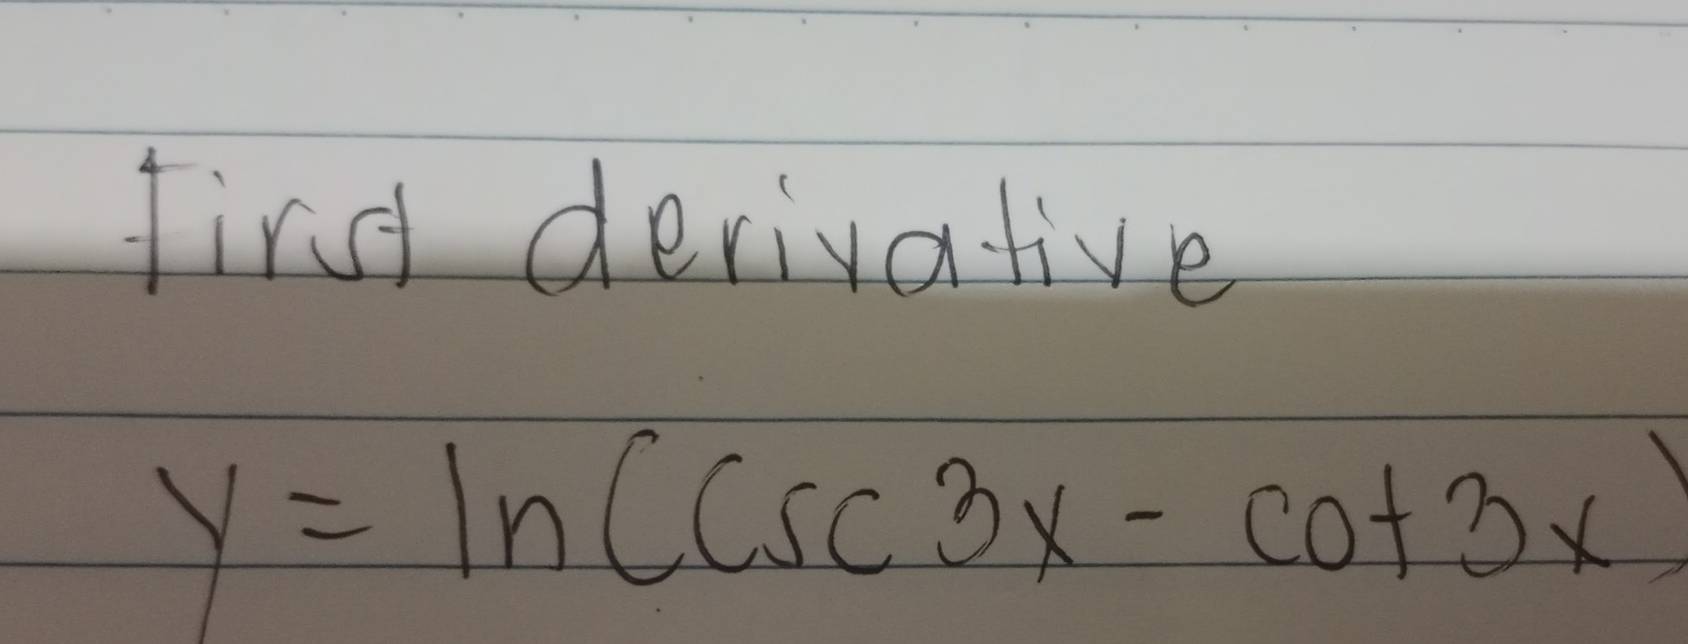 first derivative
y = ln(csc 3x - cot 3x)